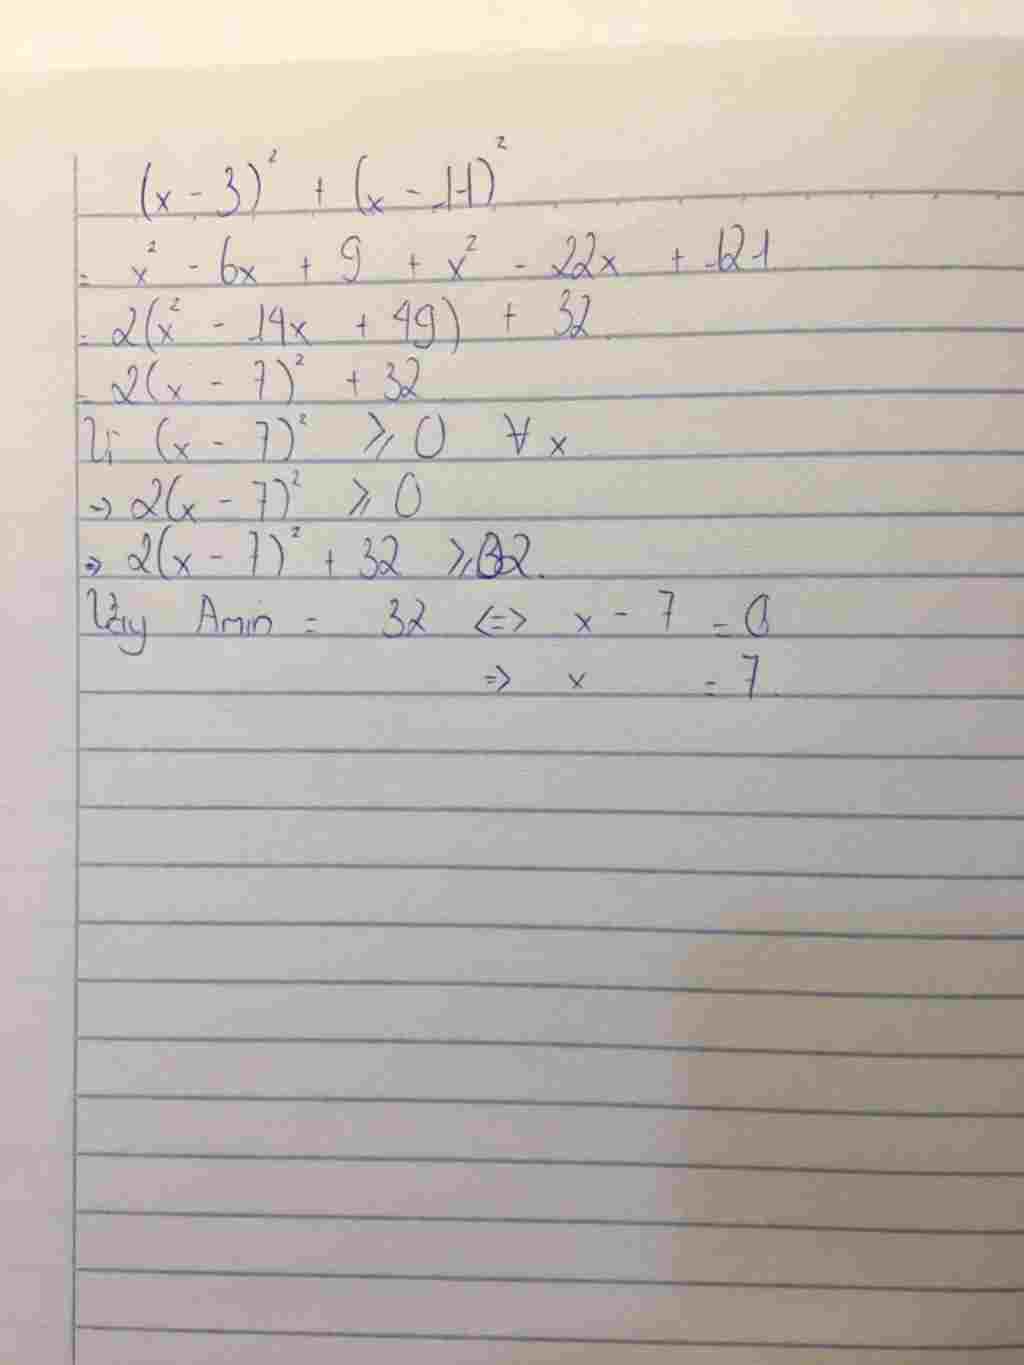 (x - 3)² + (x - 11)²
= x² - 6x + 9 + x² - 22x + 121
= 2(x² - 14x + 49) + 32
= 2(x - 7)² + 32
Vì (x - 7)² ⩾ 0 ∀ x
⇒ 2(x - 7)² ⩾ 0
⇒ 2(x - 7)² + 32 ⩾ 32.
Vậy Amin = 32 ⇔ x - 7 = 0
⇒ x = 7.